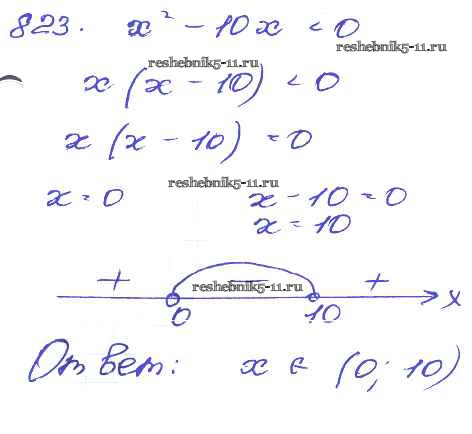 823. x² - 10x < 0
reshebnik5-11.ru
reshebnik5-11.ru
x (x - 10) < 0
x (x - 10) = 0
reshebnik5-11.ru
x = 0 x - 10 = 0
x = 10
+ - +
reshebnik5-11.ru
0 10 x
Ответ: x ∈ (0; 10)